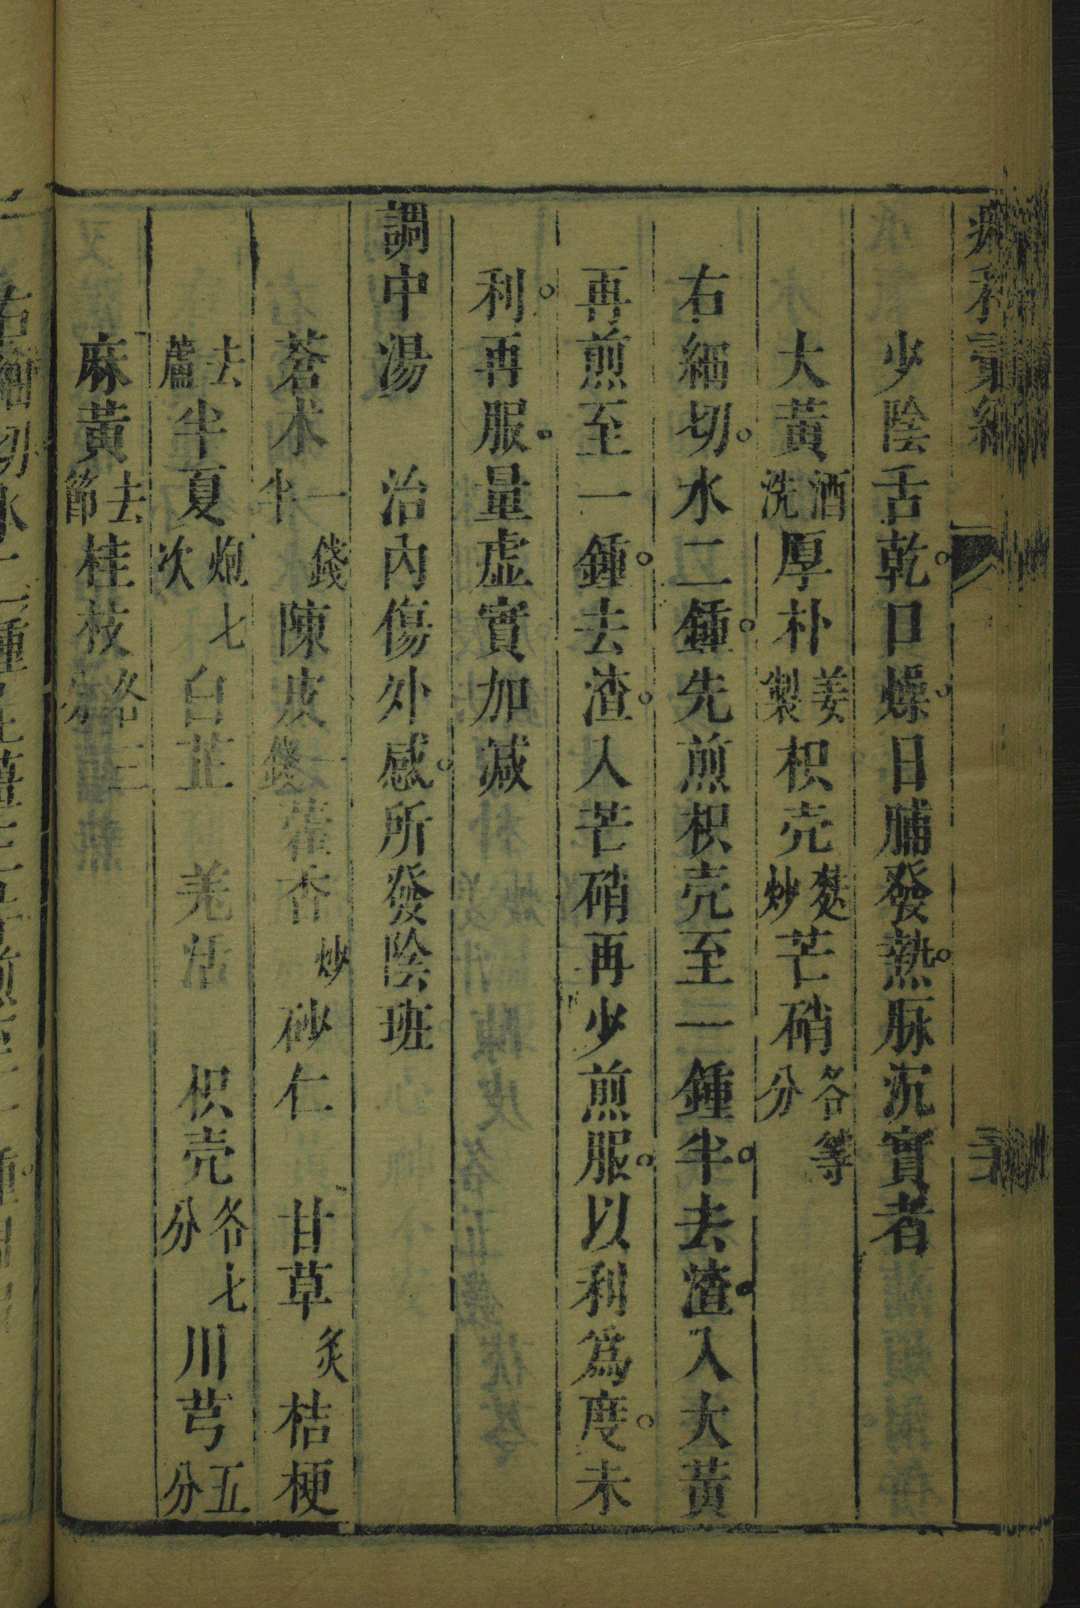 少陰舌乾口燥日脯發熱脉沉實者
大黃酒洗厚朴姜製枳壳麩炒芒硝各等分
右細切水二鍾先煎枳壳至一鍾半去渣入大黃
再煎至一鍾去渣入芒硝再少煎服以利爲度未
利再服量虛實加减
調中湯　治內傷外感所發陰班
蒼术一錢半陳皮一錢藿香炒砂仁　甘草炙桔梗
去蘆半夏炮七次白芷　羌活　枳壳各七分川芎五分
麻黃去節桂枝各三分